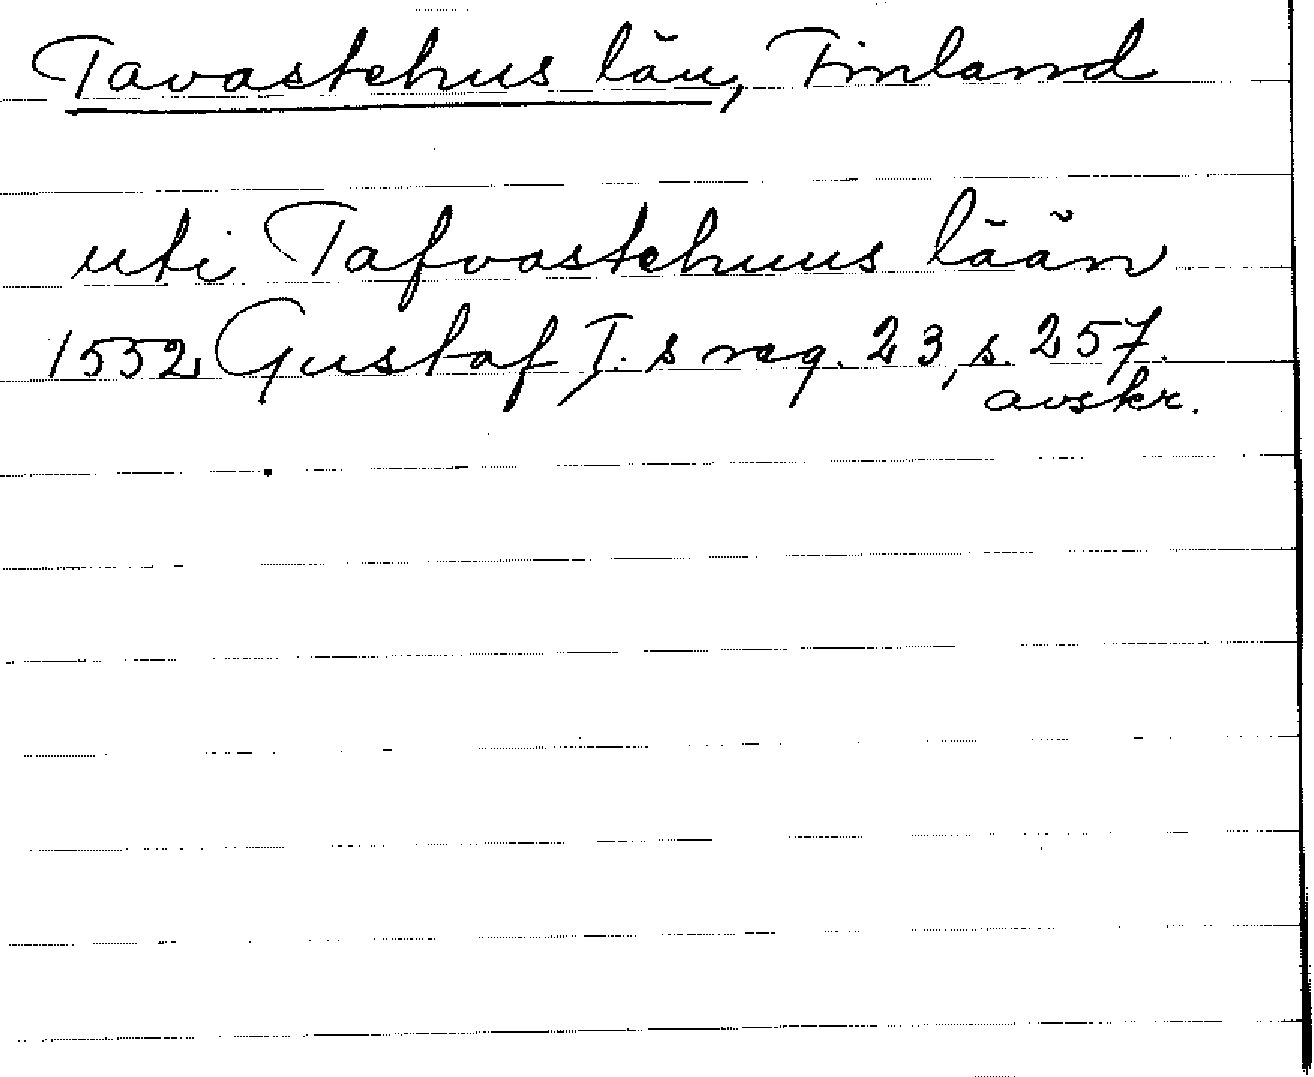 Tavastehus län, Finland
uti Tafvastehuus lään
1552 Gustaf I:s reg. 23, s. 257.
avskr.